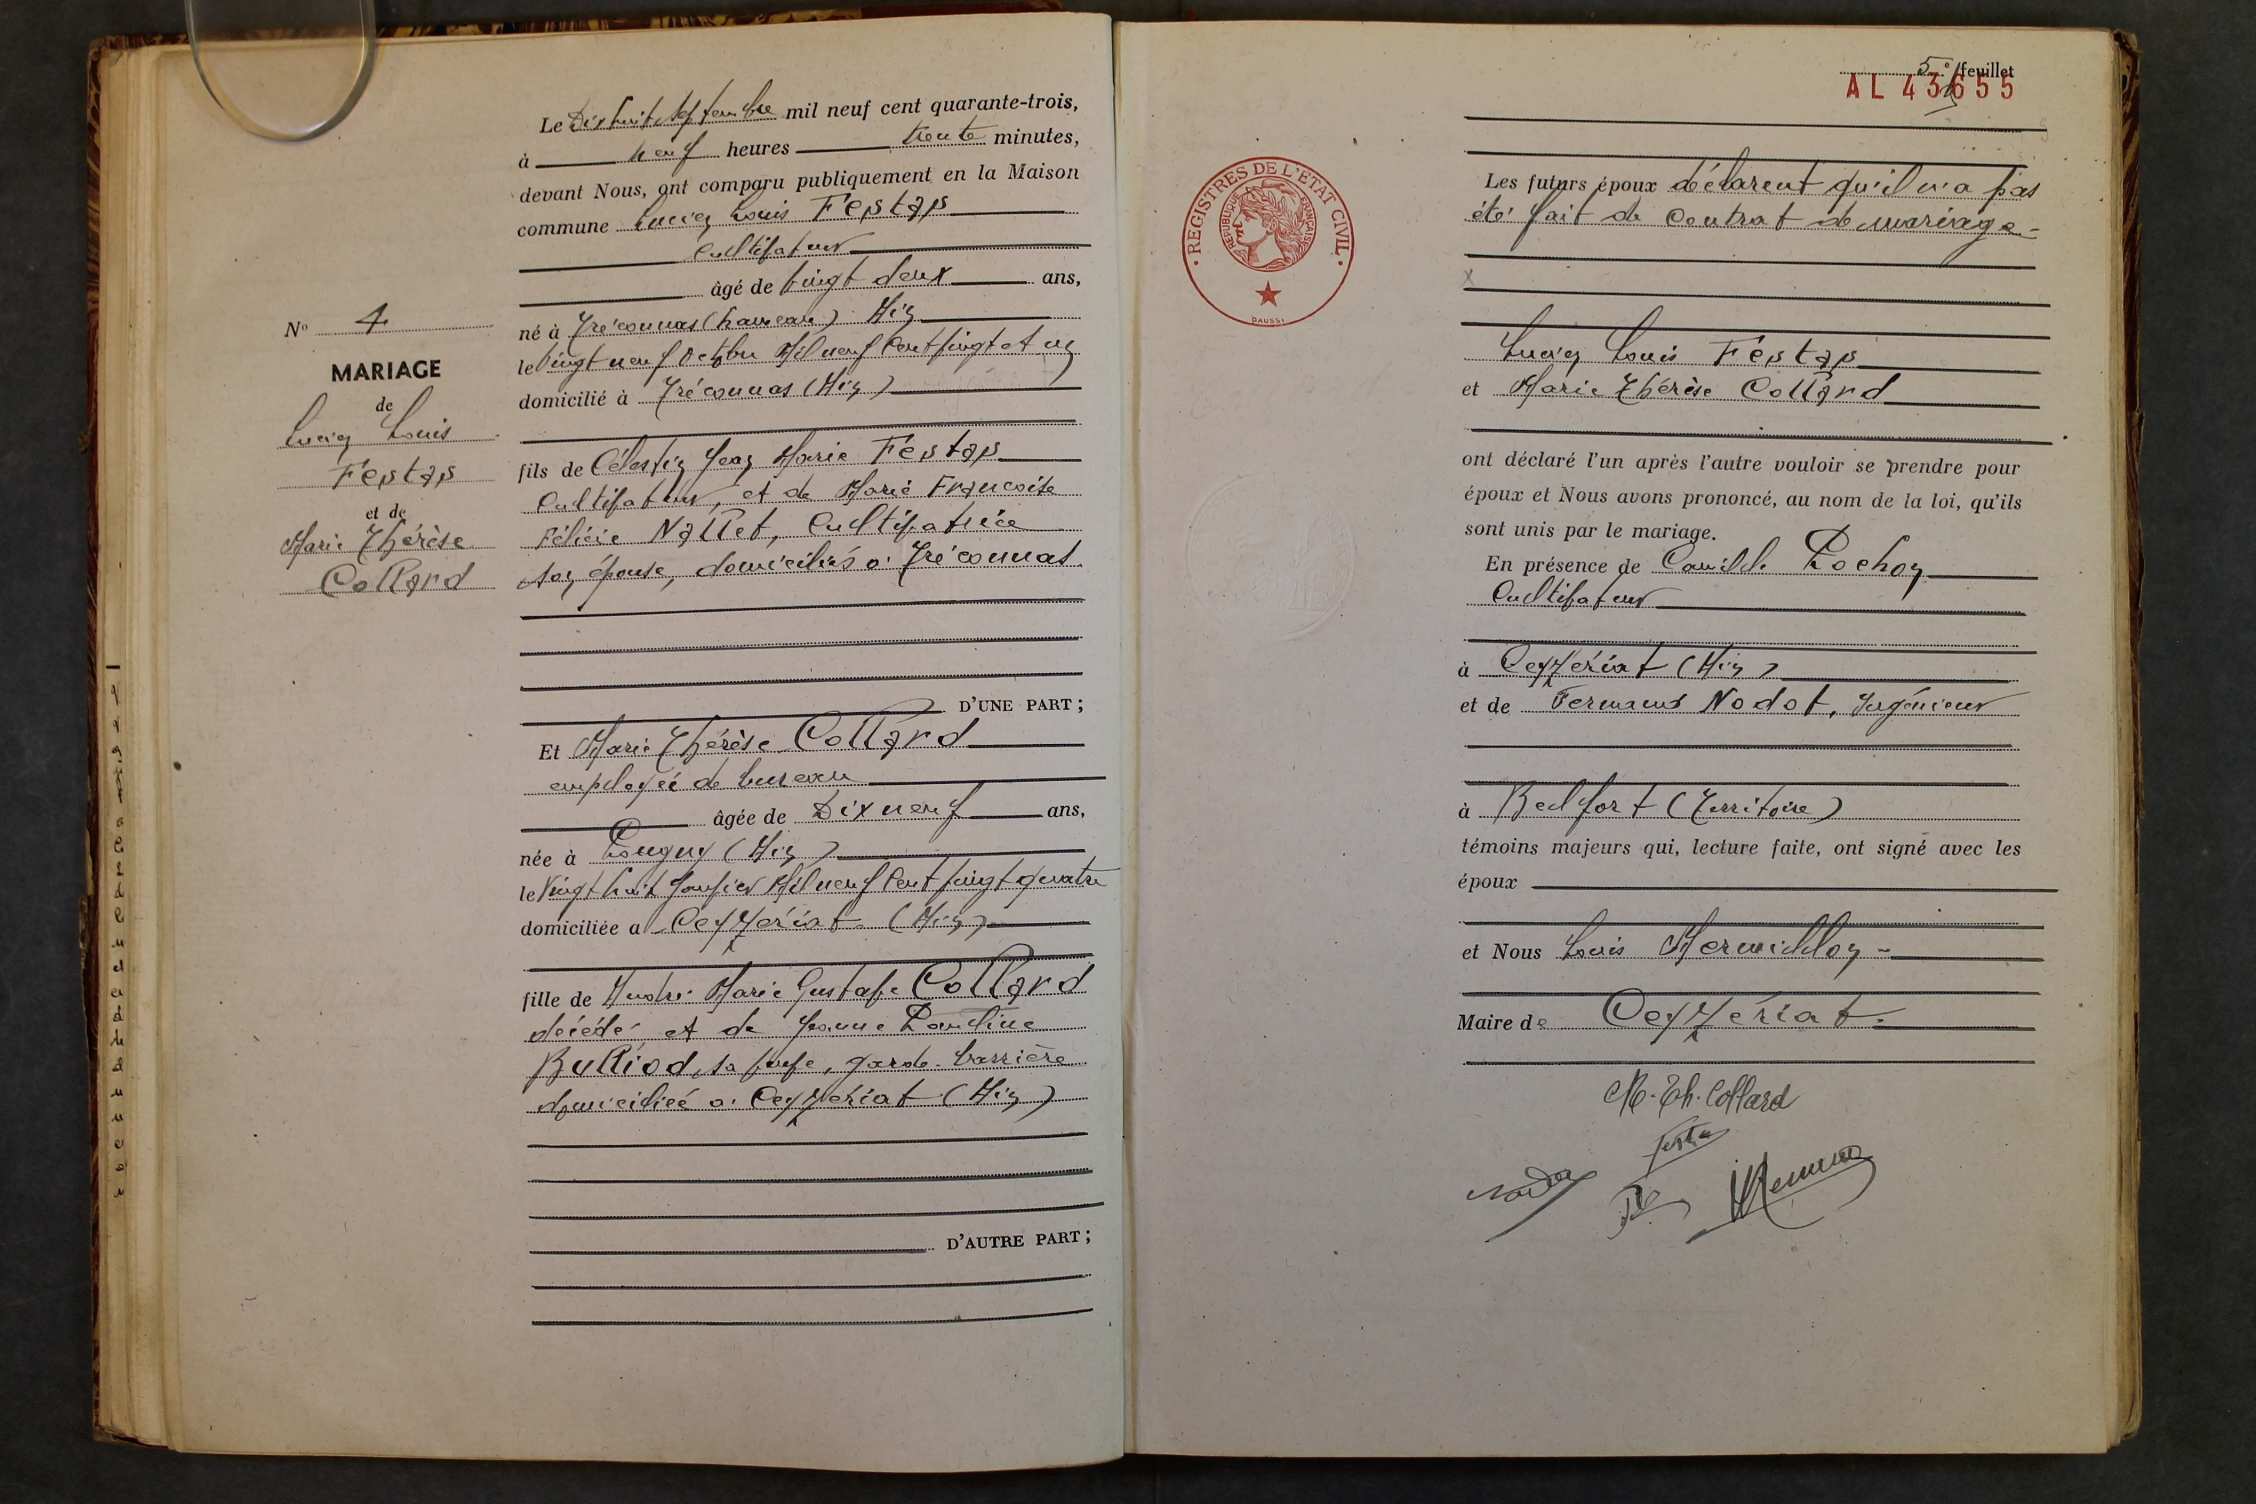 Le Dix huit Septembre mil neuf cent quarante-trois,
à neuf heures trente minutes,
devant Nous, ont comparu publiquement en la Maison
commune Lucien Louis Festas
Cultivateur
âgé de vingt deux ans,
né à Tréconnas (hameau) Ain
le Vingt neuf Octobre Mil neuf Cent vingt et un
domicilié à Tréconnas (Ain)
fils de Célestin Jean Marie Festas
Cultivateur, et de Marie Françoise
Félicie Nallet, Cultivatrice
son épouse, domiciliés à Tréconnas
D'UNE PART ;
Nº 4
MARIAGE
de
Lucien Louis
Festas
et de
Marie Thérèse
Collard
Et Marie Thérèse Collard
employée de bureau
âgée de Dix neuf ans,
née à Pougny (Ain)
le Vingt huit Janvier Mil neuf Cent vingt quatre
domiciliée à Ceyzériat (Ain)
fille de André Marie Gustave Collard
décédé et de Jeanne Pauline
Bulliod, sa veuve, garde-barrière
domiciliée à Ceyzériat (Ain)
D'AUTRE PART ;
5e feuillet
AL 43655
REGISTRES DE L'ETAT CIVIL
REPUBLIQUE FRANÇAISE
DAUSSI
Les futurs époux déclarent qu'il n'a pas
été fait de Contrat de mariage -
Lucien Louis Festas
et Marie Thérèse Collard
ont déclaré l'un après l'autre vouloir se prendre pour
époux et Nous avons prononcé, au nom de la loi, qu'ils
sont unis par le mariage.
En présence de Camille Rochon
Cultivateur
à Ceyzériat (Ain)
et de Fernand Nodot, Ingénieur
à Belfort (Territoire)
témoins majeurs qui, lecture faite, ont signé avec les
époux
et Nous Louis Mermillon -
Maire de Ceyzériat.
M. Th. Collard